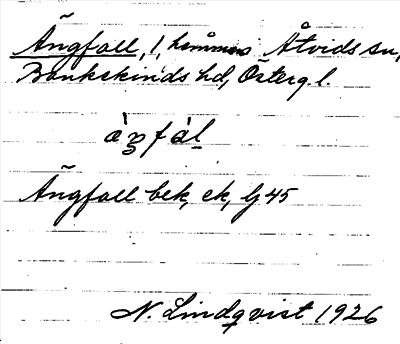 Ängfall, 1, hemman Åtvids sn,
Bankekinds hd, Österg. l.
àŋfàl
Ängfall bek, ek, lj 45
N. Lindqvist 1926